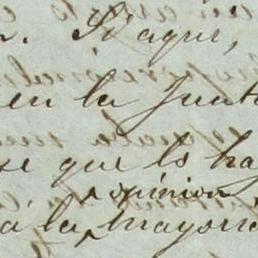 Si aqui,
en la Junta
se que lo ha
opinion
á la mayori